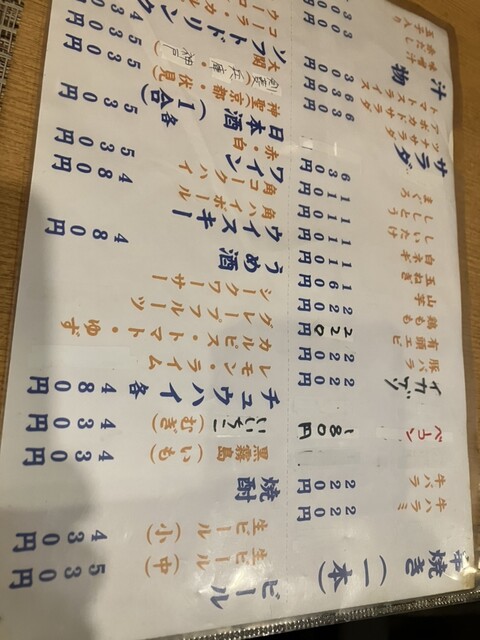 串焼き（一本）
牛ハラミ 220円
牛バラ 220円
ベーコン 180円
イカゲソ 220円
豚バラ 220円
有頭エビ 220円
鶏もも 220円
山芋 160円
玉ねぎ 110円
白ネギ 110円
しいたけ 110円
ししとう 110円
まぐろ 630円
サラダ
ツナサラダ 630円
アボカドサラダ 630円
トマトスライス 300円
汁物
味噌汁
赤だし 300円
玉子入り
ビール
生ビール（中） 530円
生ビール（小） 430円
焼酎
黒霧島（いも） 430円
いいちこ（むぎ） 430円
チュウハイ 各480円
レモン・ライム
カルピス・トマト・ゆず
グレープフルーツ
シークワーサー
うめ酒 480円
ウイスキー
角ハイボール
角コークハイ 480円
ワイン
赤・白 530円
日本酒（1合） 各530円
神聖（京都・伏見）
（兵庫・神戸）
大関
ソフトドリンク